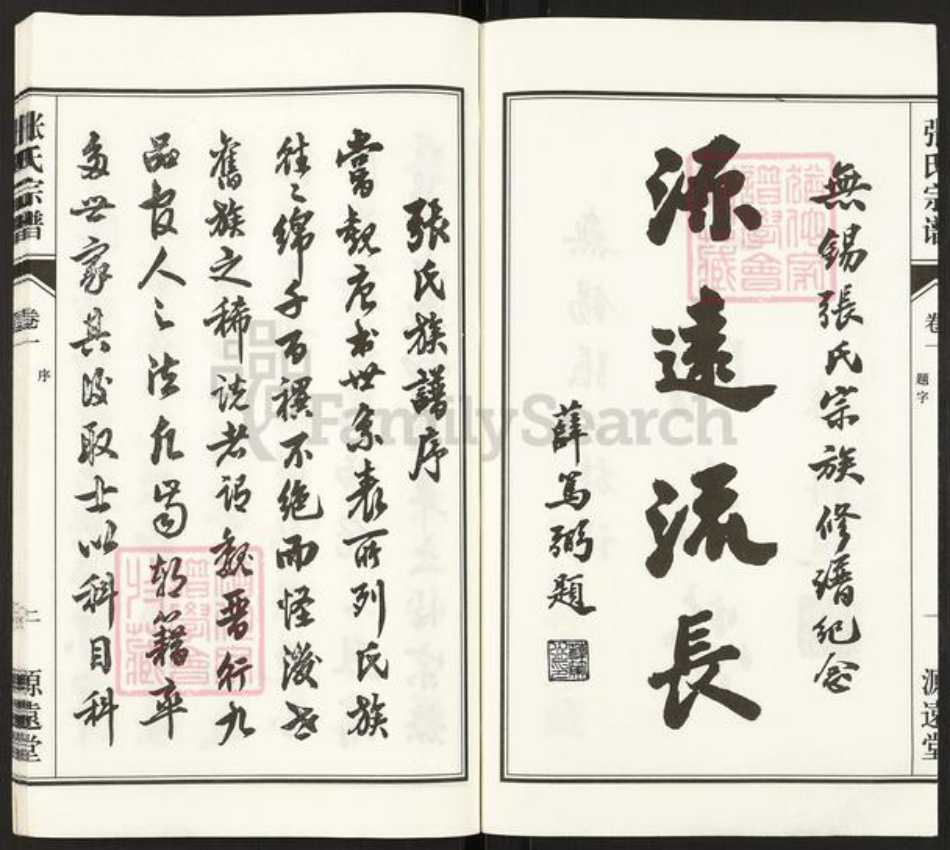 张氏宗谱
卷一
題字
一
源遠堂
無錫張氏宗族修譜紀念
源遠流長
薛篤弼題
張氏族譜序
嘗觀唐書世系表所列氏族
往々綿千百禩不絶而怪後世
舊族之稀說者謂魏晋行九
品官人之法凡酋朝籍率
多世家其後取士以科目科
张氏宗譜
卷一
序
二
源遠堂
FamilySearch